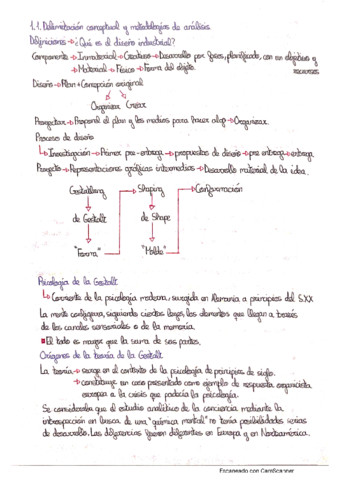 1.1. Delimitación conceptual y metodologías de análisis.
Definiciones → ¿Qué es el diseño industrial?
Componente → Inmaterial → Creativo → Desarrollo por fases, planificado, con un objetivo y
→ Material → Físico → Forma del objeto. recursos
Diseño → Plan + Concepción original
Organizar Crear
Proyectar → Proponer el plan y los medios para hacer algo → Organizar.
Proceso de diseño
↳ Investigación → Primer pre-entrega → propuestas de diseño → pre entrega → entrega
Proyecto → Representaciones gráficas intermedias → Desarrollo material de la idea.
Gestaltung → Shaping → Conformación
de Gestalt de Shape
"Forma" "Molde"
Psicología de la Gestalt
↳ Corriente de la psicología moderna, surgida en Alemania a principios del S.XX
La mente configura, siguiendo ciertas leyes, los elementos que llegan a través
de los canales sensoriales o de la memoria.
El todo es mayor que la suma de sus partes.
Orígenes de la teoría de la Gestalt.
La teoría → surge en el contexto de la psicología de principios de siglo.
→ constituye un caso presentado como ejemplo de respuesta organicista
europea a la crisis que padecía la psicología.
Se consideraba que el estudio analítico de la conciencia mediante la
introspección en busca de una "química mental" no tenía posibilidades serias
de desarrollo. Las diferencias fueron diferentes en Europa y en Norteamérica.
Escaneado con CamScanner